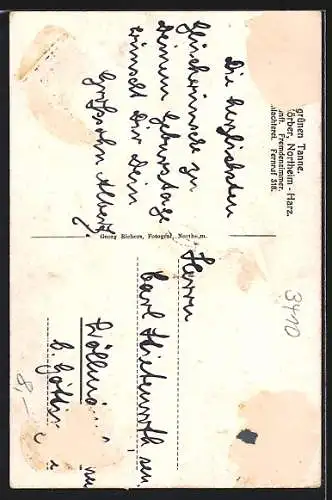 grünen Tanne.
örber, Northeim - Harz.
nft. Fremdenzimmer.
lachterei. Fernruf 318.
Die herzlichsten
Glückwünsche zu
Deinem Geburtstage
wünscht Dir Dein
Großsohn Albert.
Georg Eichers, Fotograf, Northeim.
Herrn
Carl sen.
b. Göttin
3410
8,-